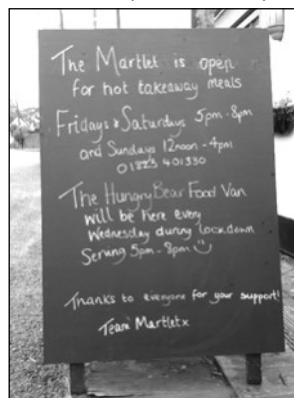 The Martlet is open
for hot takeaway meals
Fridays & Saturdays 5pm - 8pm
and Sundays 12noon - 4pm
01823 401330
The HungryBear Food Van
will be here every
Wednesday during lockdown
Serving 5pm - 8pm
Thanks to everyone for your support!
Team Martlet x